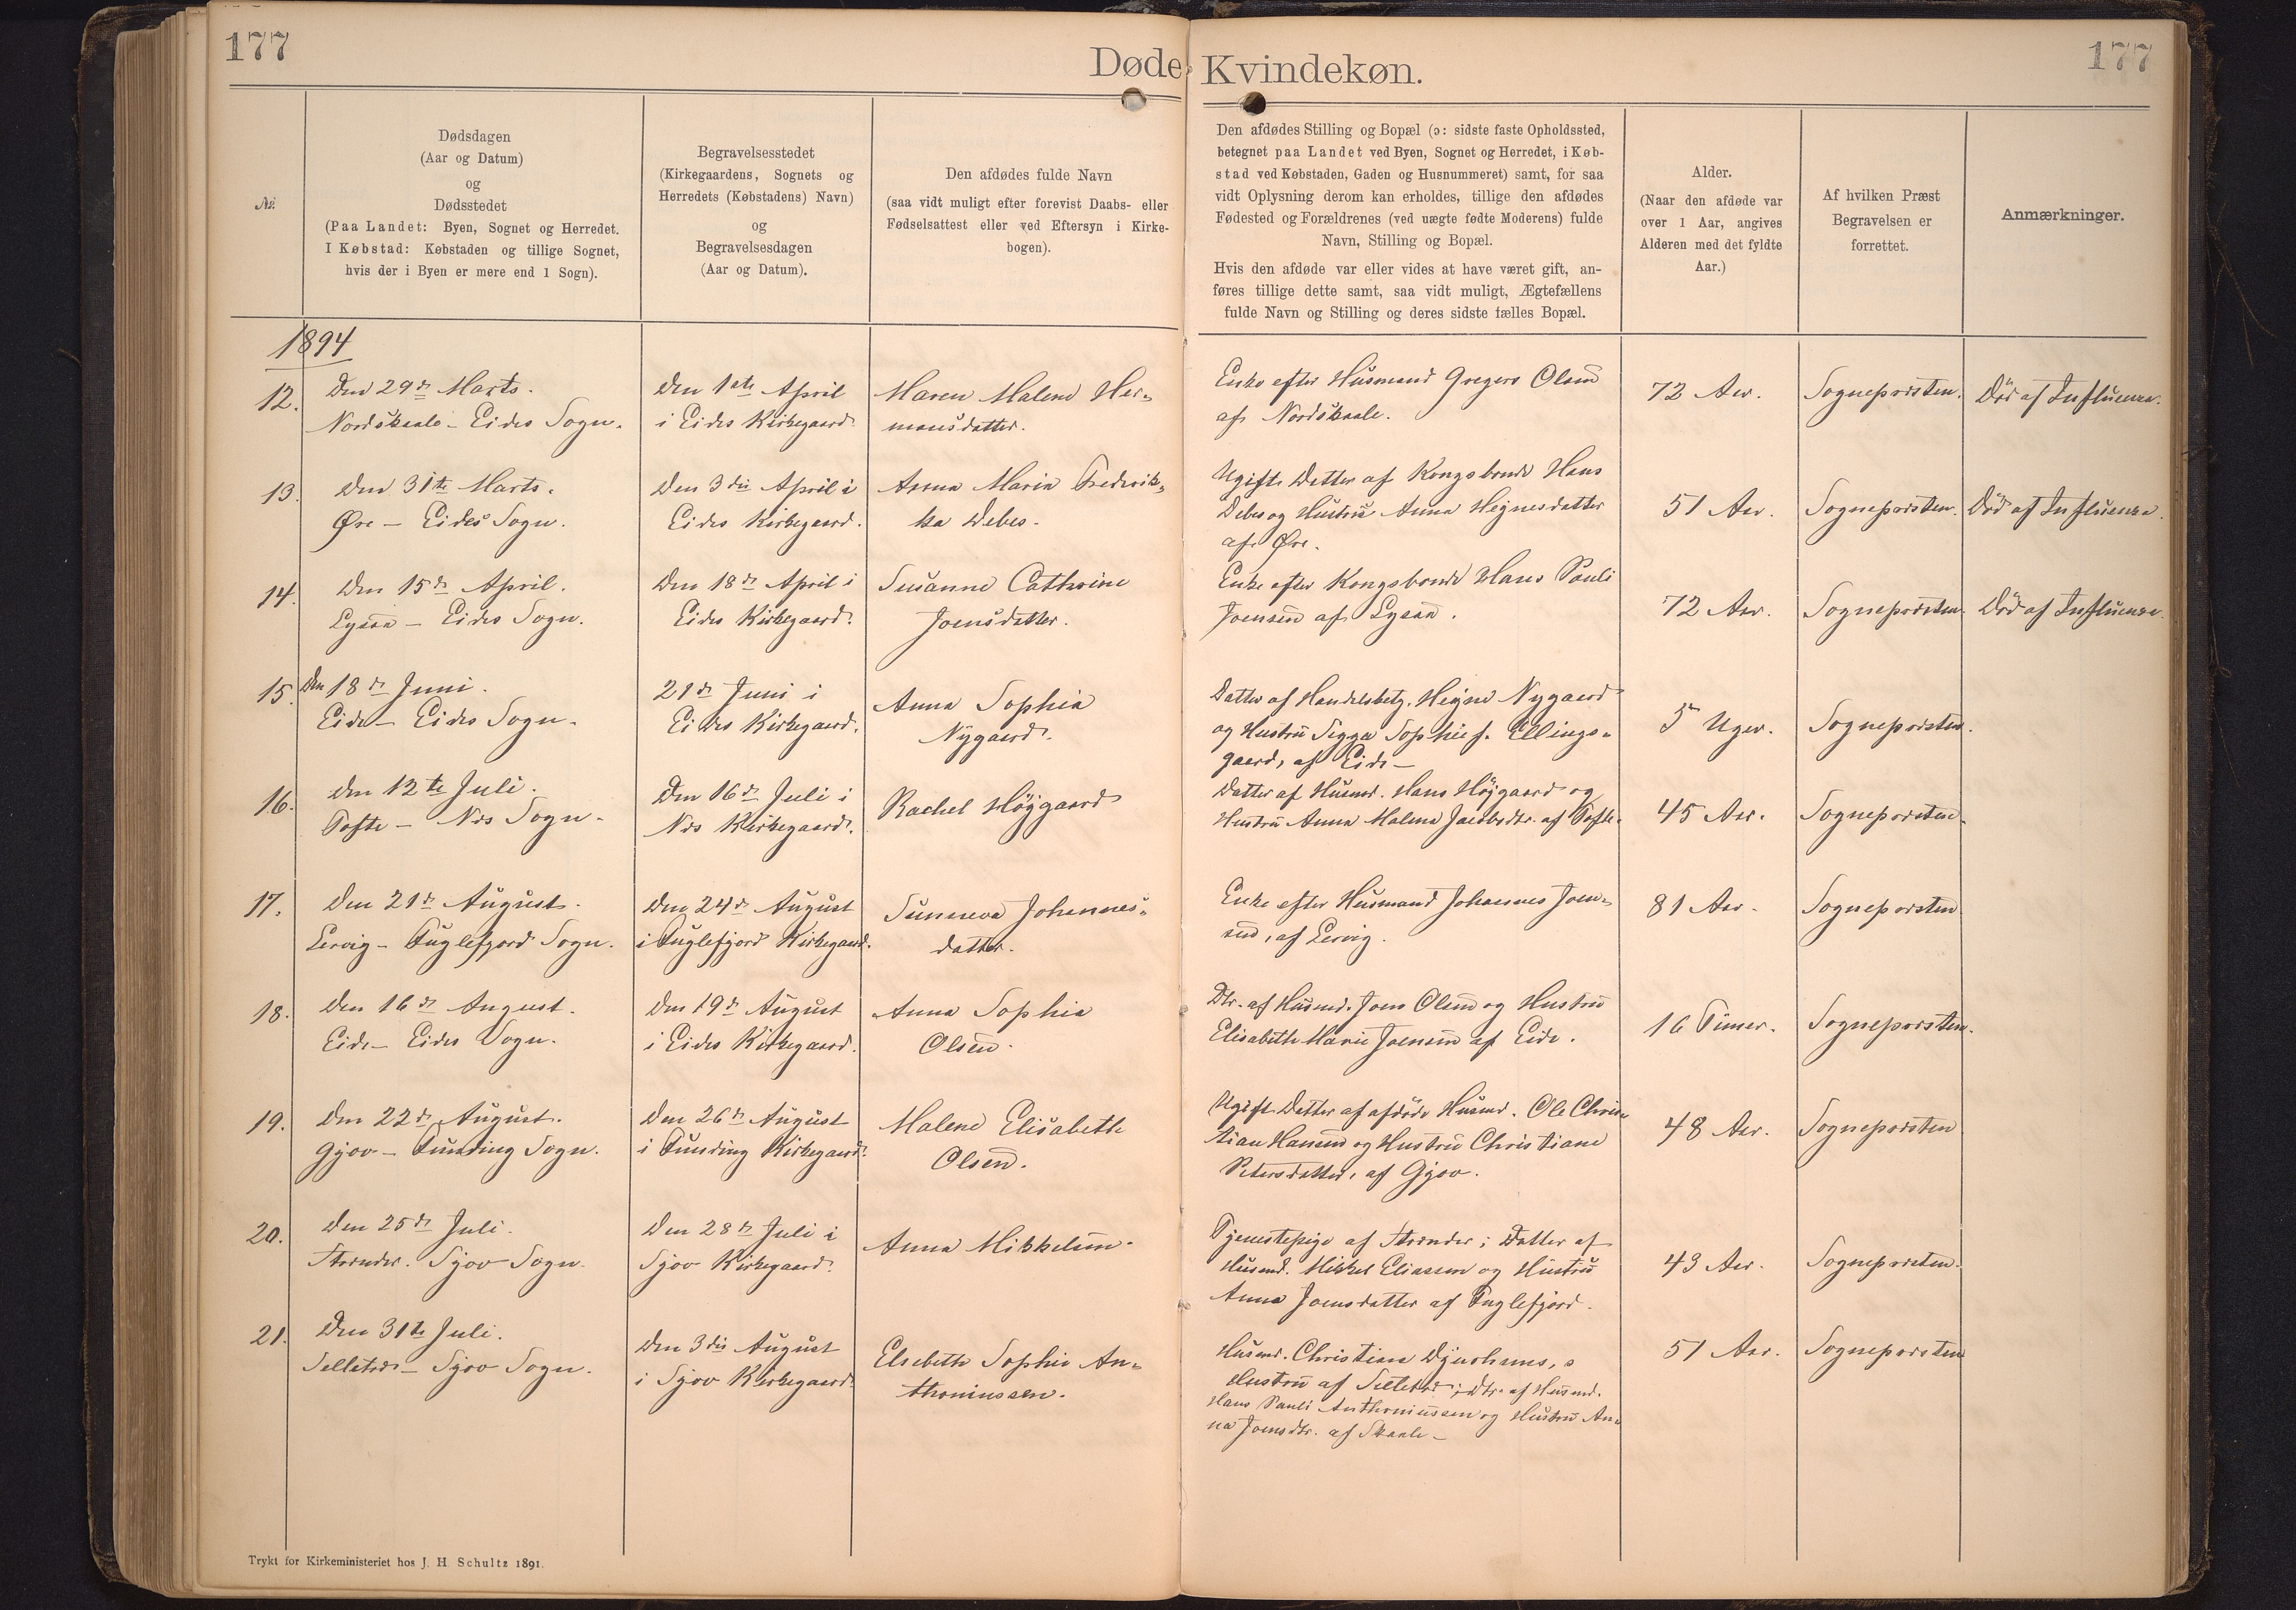 177
Døde
Kvindekøn.
177
№
Dødsdagen
(Aar og Datum)
og
Dødsstedet
(Paa Landet: Byen, Sognet og Herredet.
I Købstad: Købstaden og tillige Sognet,
hvis der i Byen er mere end 1 Sogn).
Begravelsesstedet
(Kirkegaardens, Sognets og
Herredets (Købstadens) Navn)
og
Begravelsesdagen
(Aar og Datum).
Den afdødes fulde Navn
(saa vidt muligt efter forevist Daabs- eller
Fødselsattest eller ved Eftersyn i Kirke-
bogen).
Den afdødes Stilling og Bopæl (ɔ: sidste faste Opholdssted,
betegnet paa Landet ved Byen, Sognet og Herredet, i Køb-
stad ved Købstaden, Gaden og Husnummeret) samt, for saa
vidt Oplysning derom kan erholdes, tillige den afdødes
Fødested og Forældrenes (ved uægte fødte Moderens) fulde
Navn, Stilling og Bopæl.
Hvis den afdøde var eller vides at have været gift, an-
føres tillige dette samt, saa vidt muligt, Ægtefællens
fulde Navn og Stilling og deres sidste fælles Bopæl.
Alder.
(Naar den afdøde var
over 1 Aar, angives
Alderen med det fyldte
Aar.)
Af hvilken Præst
Begravelsen er
forrettet.
Anmærkninger.
1894
12.
Den 29de Marts.
Nordskaale - Eides Sogn.
Den 1ste April
i Eides Kirkegaard
Maren Malene Her-
mansdatter.
Enke efter Husmand Gregers Olsen
af Nordskaale.
72 Aar.
Sognepræsten.
Død af Influenza.
13.
Den 31te Marts.
Øre - Eides Sogn.
Den 3die April i
Eides Kirkegaard.
Anna Maria Frederik-
ka Debes.
Ugifte Datter af Kongsbonde Hans
Debes og Hustru Anna Heynesdatter
af Øre.
51 Aar.
Sognepræsten.
Død af Influenza.
14.
Den 15de April.
Lysaa - Eides Sogn.
Den 18de April i
Eides Kirkegaard.
Susanne Cathrine
Joensdatter.
Enke efter Kongsbonde Hans Pauli
Joensen af Lysaa.
72 Aar.
Sognepræsten.
Død af Influenza.
15.
Den 18de Juni.
Eide - Eides Sogn.
21de Juni i
Eides Kirkegaard.
Anna Sophia
Nygaard.
Datter af Handelsbetj. Heyne Nygaard
og Hustru Sigga Sophie f. Ellings-
gaard, af Eide -
5 Uger.
Sognepræsten.
16.
Den 12te Juli.
Tofte - Nes Sogn.
Den 16de Juli i
Nes Kirkegaard.
Rachel Højgaard
Datter af Husmd. Hans Højgaard og
Hustru Anna Malena Jacobsdtr. af Tofte.
45 Aar.
Sognepræsten.
17.
Den 21de August.
Lervig - Fuglefjord Sogn.
Den 24de August
i Fuglefjord Kirkegaard.
Sunneva Johannes-
datter.
Enke efter Husmand Johannes Joen-
sen, af Lervig.
81 Aar.
Sognepræsten
18.
Den 16de August.
Eide - Eides Sogn.
Den 19de August
i Eides Kirkegaard.
Anna Sophia
Olsen.
Dtr. af Husmd. Joen Olsen og Hustru
Elisabeth Marie Joensen af Eide.
16 Timer.
Sognepræsten.
19.
Den 22de August.
Gjov - Funding Sogn.
Den 26de August
i Funding Kirkegaard.
Malene Elisabeth
Olsen.
Ugift Datter af afdøde Husmd. Ole Chris-
tian Hansen og Hustru Christiane
Petersdatter, af Gjov.
48 Aar.
Sognepræsten
20.
Den 25de Juli.
Strender. Sjov Sogn.
Den 28de Juli i
Sjov Kirkegaard.
Anna Mikkelsen.
Tjenestepige af Strender; Datter af
Husmd. Mikkel Eliassen og Hustru
Anna Joensdatter af Fuglefjord.
43 Aar.
Sognepræsten.
21.
Den 31te Juli.
Selletræ - Sjov Sogn.
Den 3die August
i Sjov Kirkegaard.
Elsebeth Sophie An-
thoniussen.
Husmd. Christian Djurhuus, s
Hustru af Selletræ; Dtr. af Husmd.
Hans Pauli Anthoniussen og Hustru An-
na Joensdtr. af Skaale -
51 Aar.
Sognepræsten
Trykt for Kirkeministeriet hos J. H. Schultz 1891.